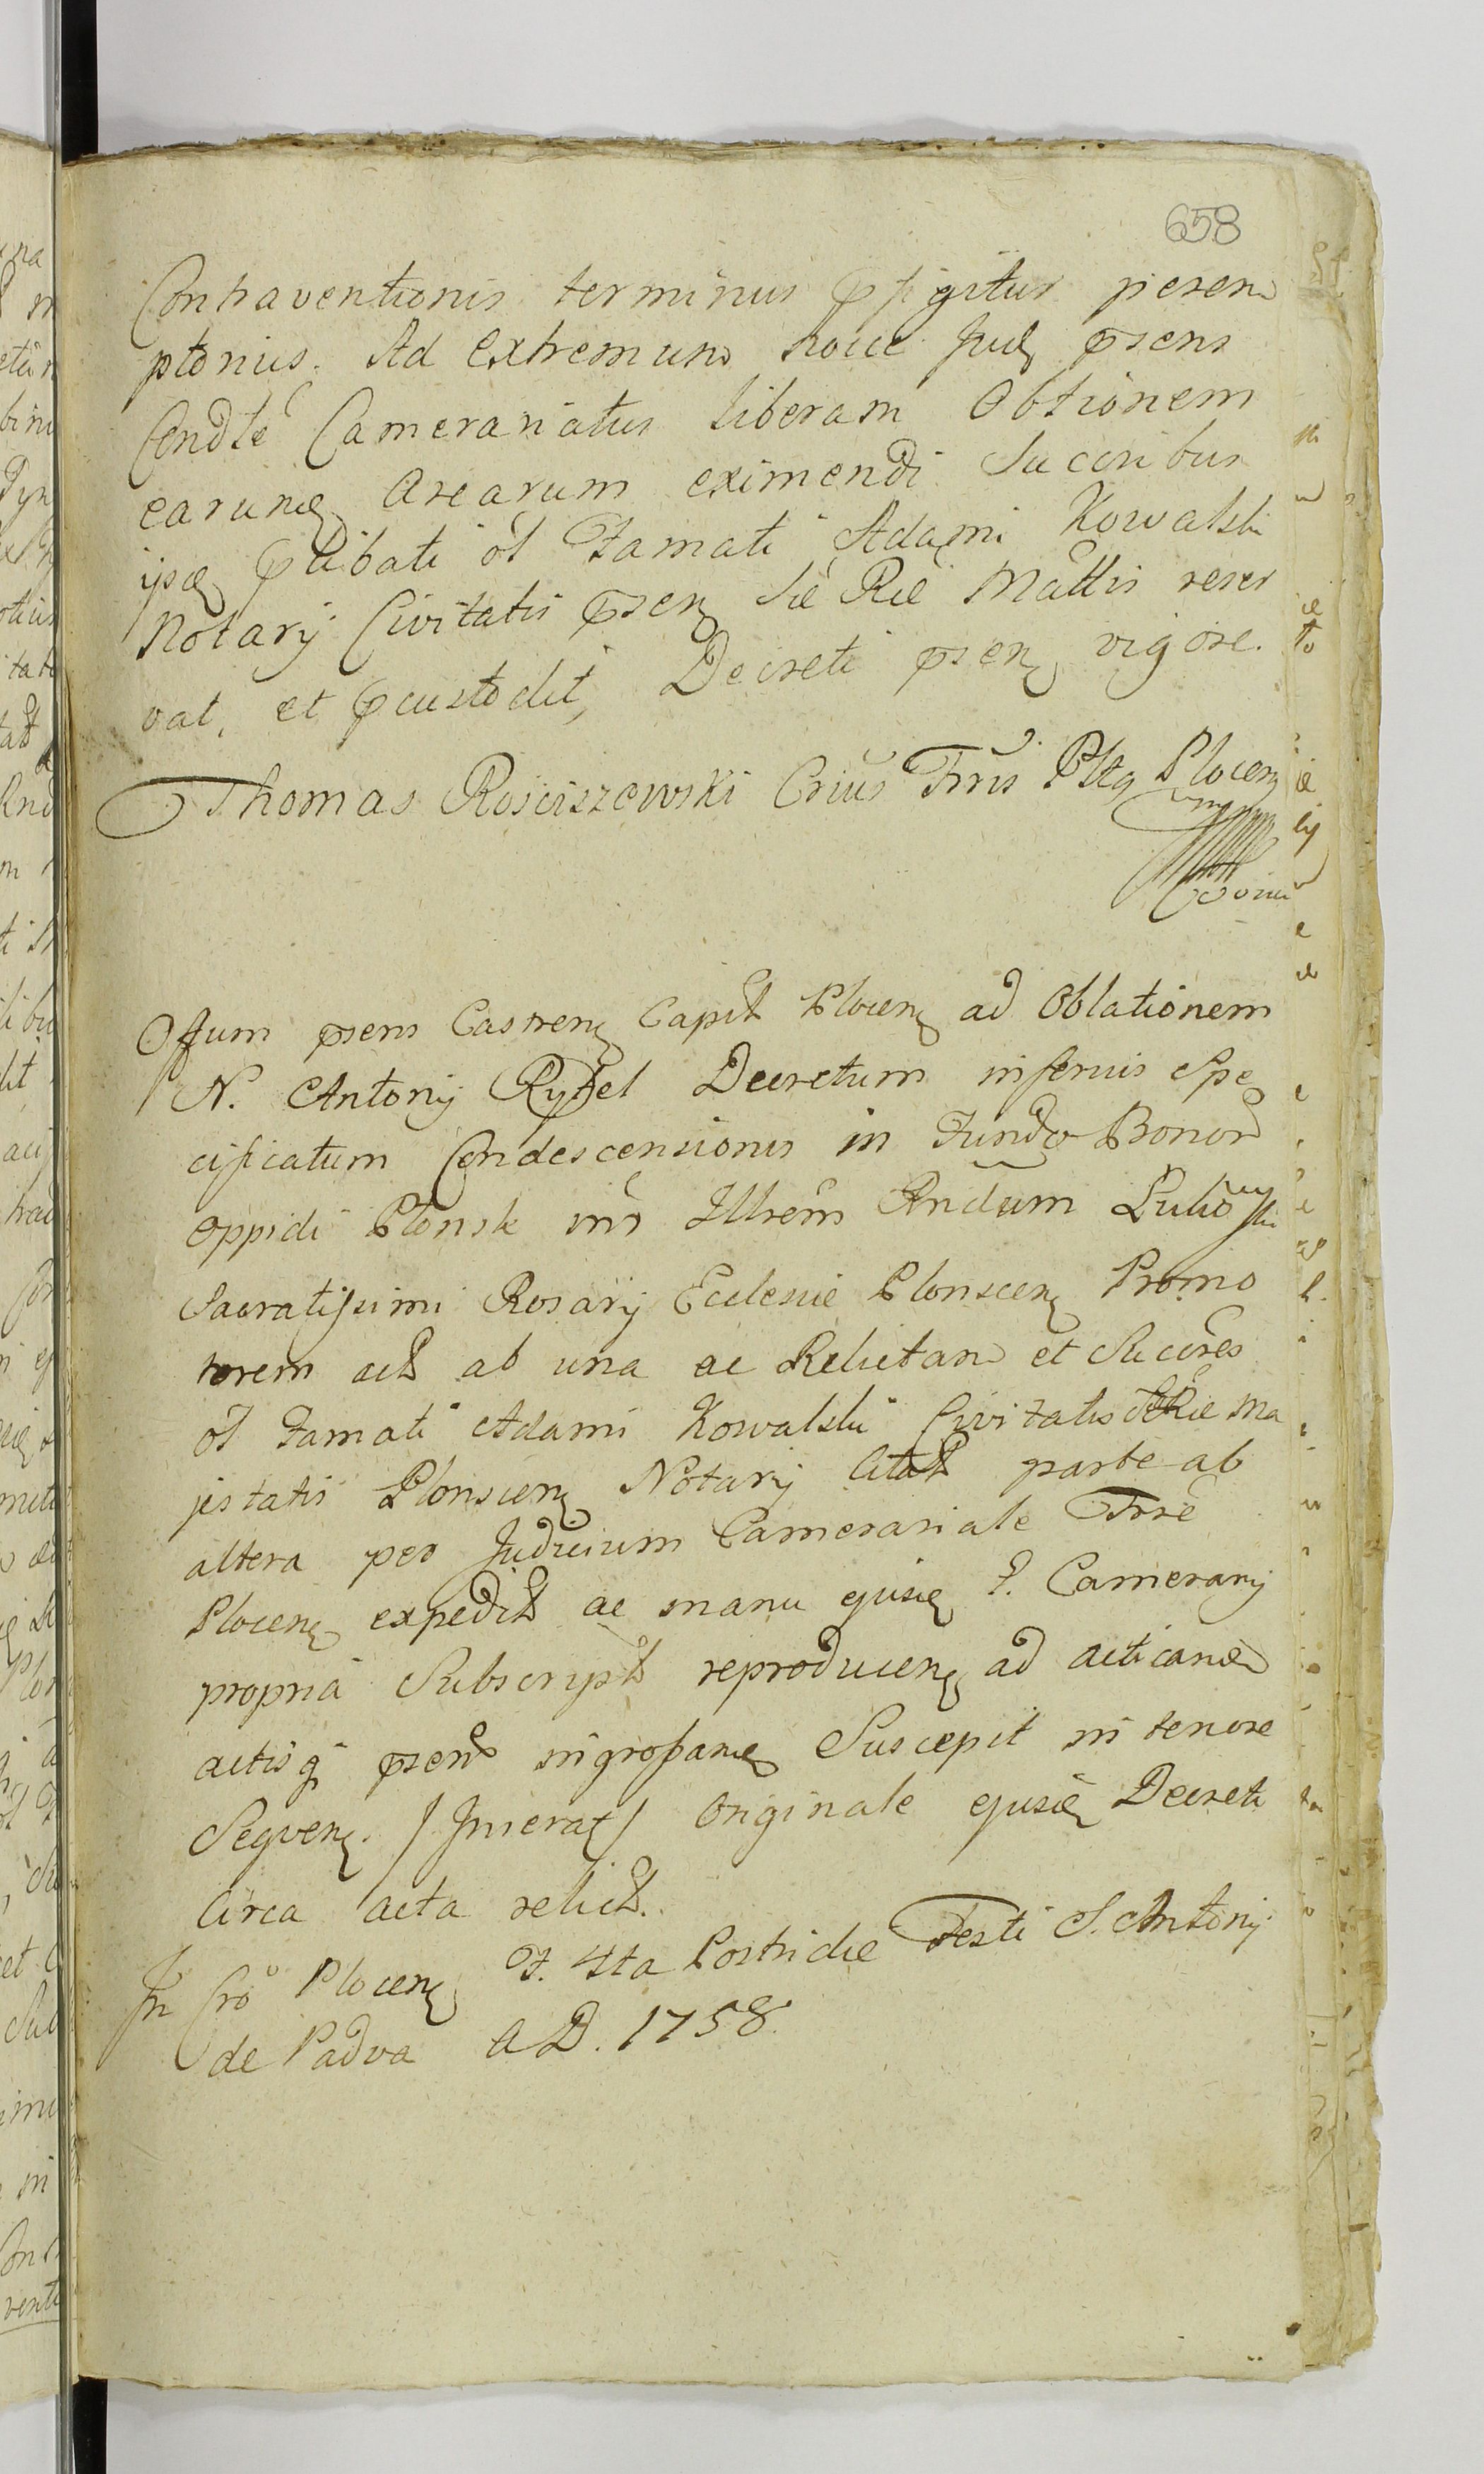 658
Contraventionis terminus pfigitur perem
ptorius. Ad Extremum hocce Jud psens
Condlẽ Camerariatus liberam Obtionem
earumq Arearum eximendi Succribus
ipsq plibati ol Famati Adami Kowalski
Notarij Civitatis psen Sẽ Rẽ Mattis reser
vat, et pcustodit, Decreti psen vigore.
Thomas Rosciszewski Crius Trris Pltq Plocen
Offum psens Castren Capit Plocen ad Oblationem
N. Antonij Rytel Decretum inferius Spe
cificatum Condescensionis in Fundo Bonor
Oppidi Plonsk inr Illrem Rndum
Sacratissimi Rosarij Ecclesiæ Plonscen Promo
torem act ab una ac Relictam et Succres
ol Famati Adami Kowalski Civitatis SRæ Ma
jestatis Plonscen Notarij Citat parte ab
altera per Judicium Camerariale Trræ
Plocen expedit ac manu ejusd P. Camerarij
propria Subscript reproducen ad acticand
actisq psent ingrossand Suscepit in tenore
Sequen. / Inserat / Originale ejusd Decreti
Circa acta relict.
In Cro Plocen F. 4ta Postridie Festi S. Antonij
de Padva A D. 1758.